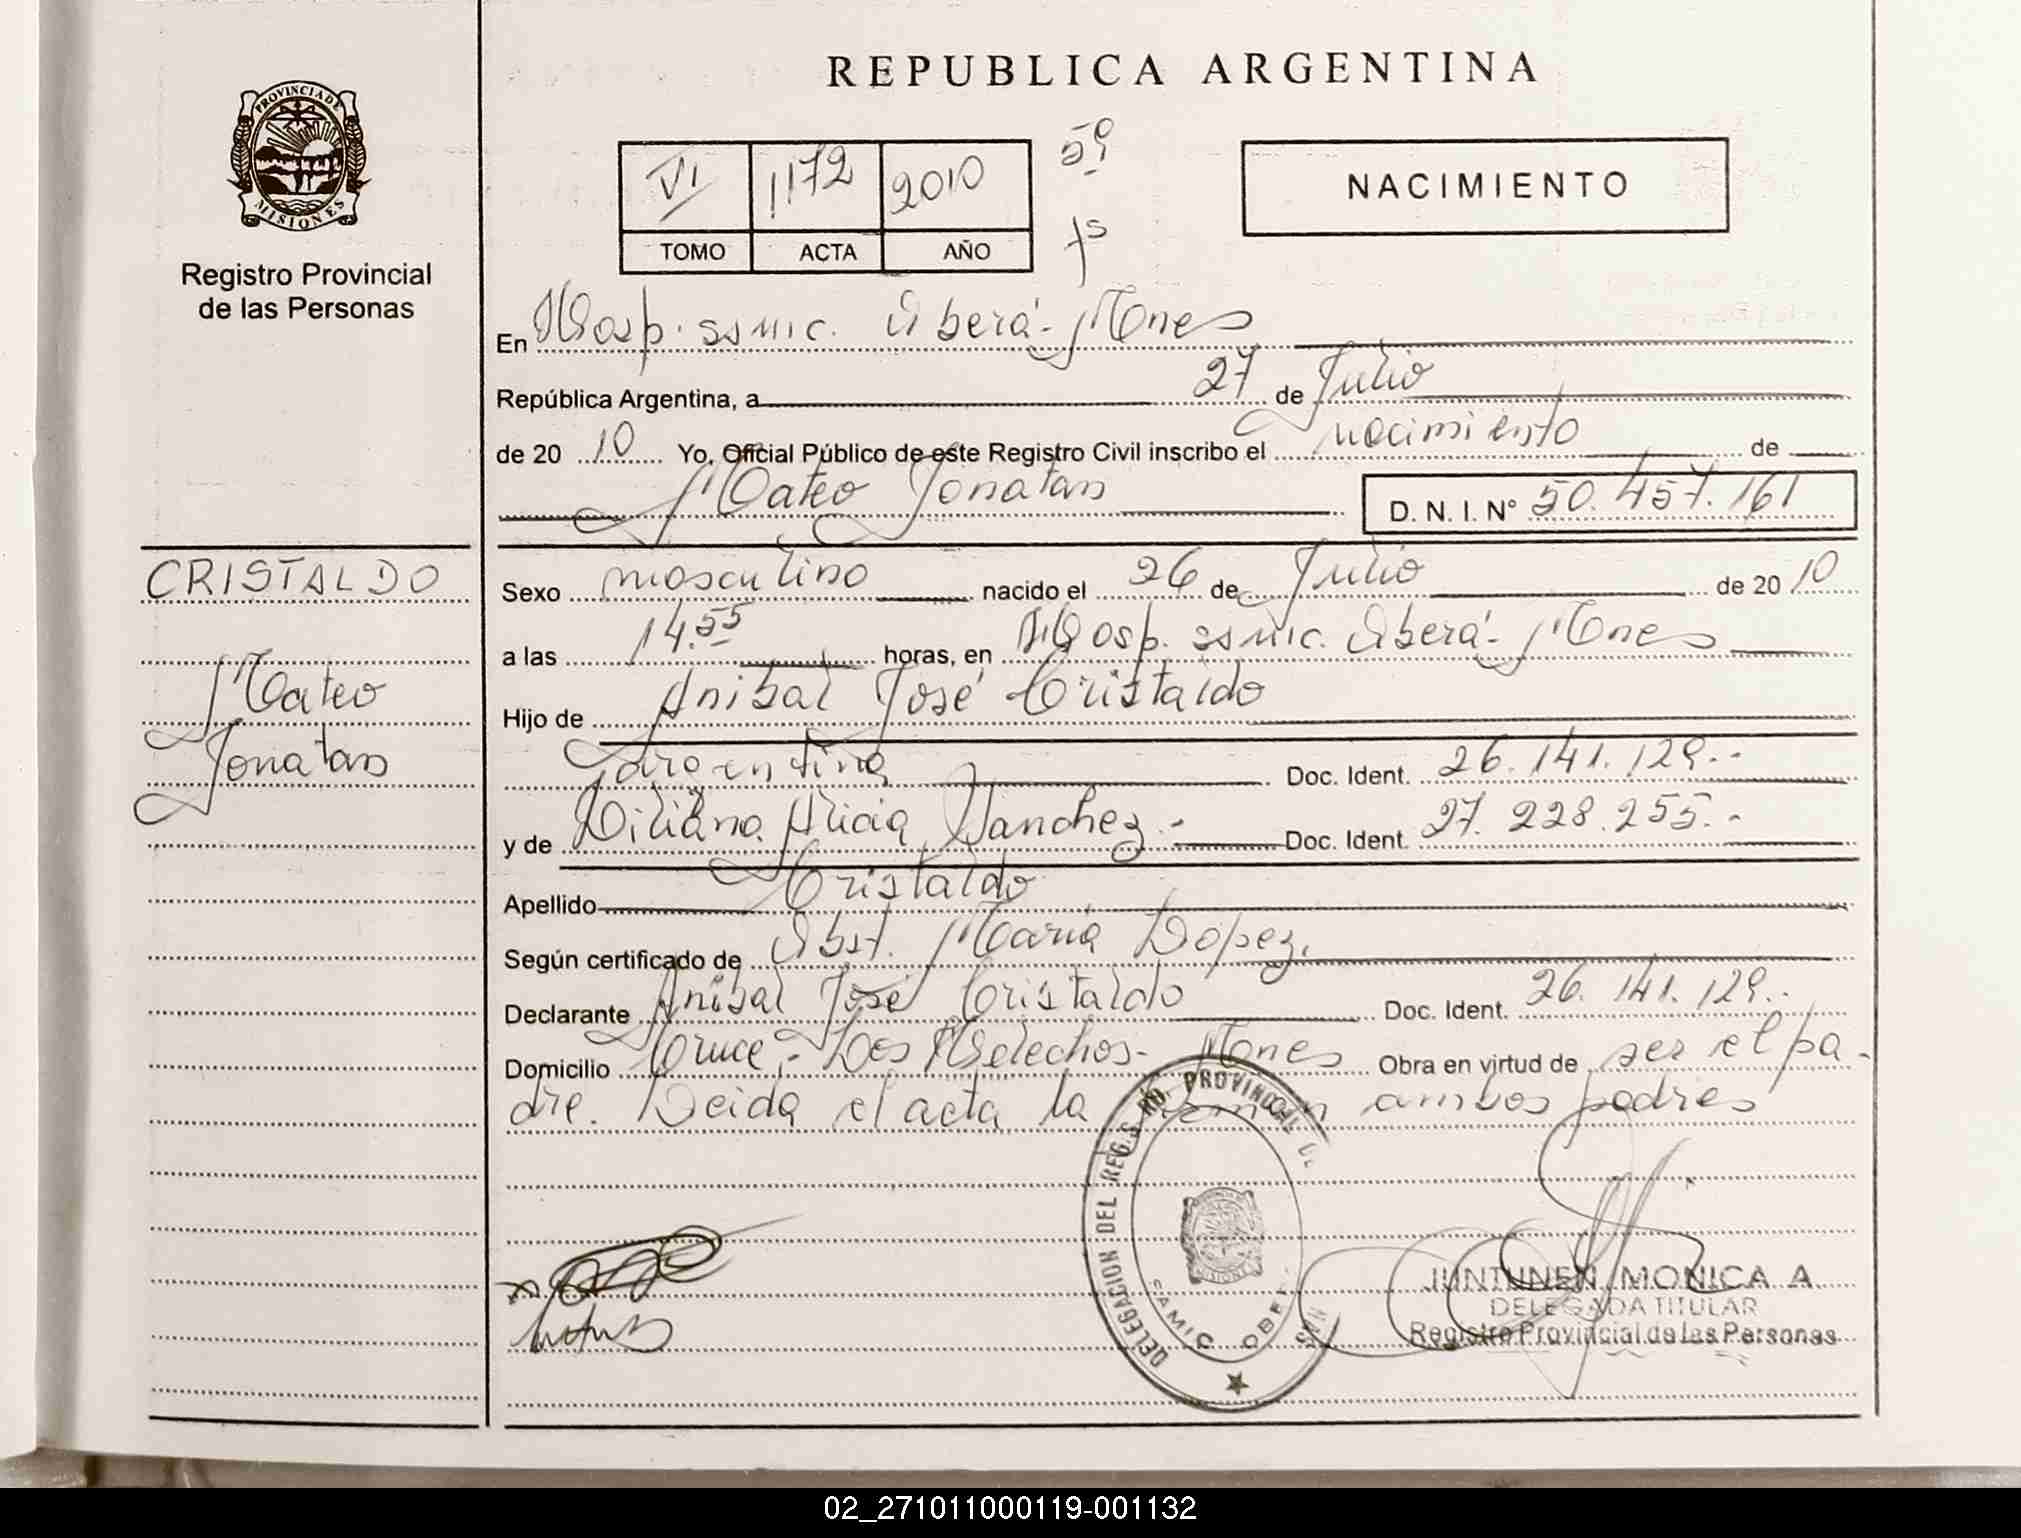 REPUBLICA ARGENTINA
PROVINCIA DE
MISIONES
Registro Provincial
de las Personas
VI 1172 2010 5º
TOMO ACTA AÑO
NACIMIENTO
En Hosp. ssmic. Oberá - Mnes
República Argentina, a 27 de Julio
de 20 10 Yo, Oficial Público de este Registro Civil inscribo el nacimiento de
Mateo Jonatan D. N. I. N° 50.457.161
CRISTALDO
Mateo
Jonatan
Sexo masculino nacido el 26 de Julio de 20 10
a las 14.55 horas, en Hosp. ssmic. Oberá - Mnes
Hijo de Anibal José Cristaldo
Argentina Doc. Ident. 26.141.129.-
y de Liliana Alicia Sanchez.- Doc. Ident. 27.228.255.-
Apellido Cristaldo
Según certificado de Obst. Maria Lopez.
Declarante Anibal José Cristaldo Doc. Ident. 26.141.129.-
Domicilio Cruce - Los Helechos - Mnes Obra en virtud de ser el pa-
dre. Leida el acta la firman ambos padres
DELEGACION DEL REG. PROVINCIAL
SAMIC OBERA
JUNTUNEN, MONICA A
DELEGADA TITULAR
Registro Provincial de las Personas
02_271011000119-001132